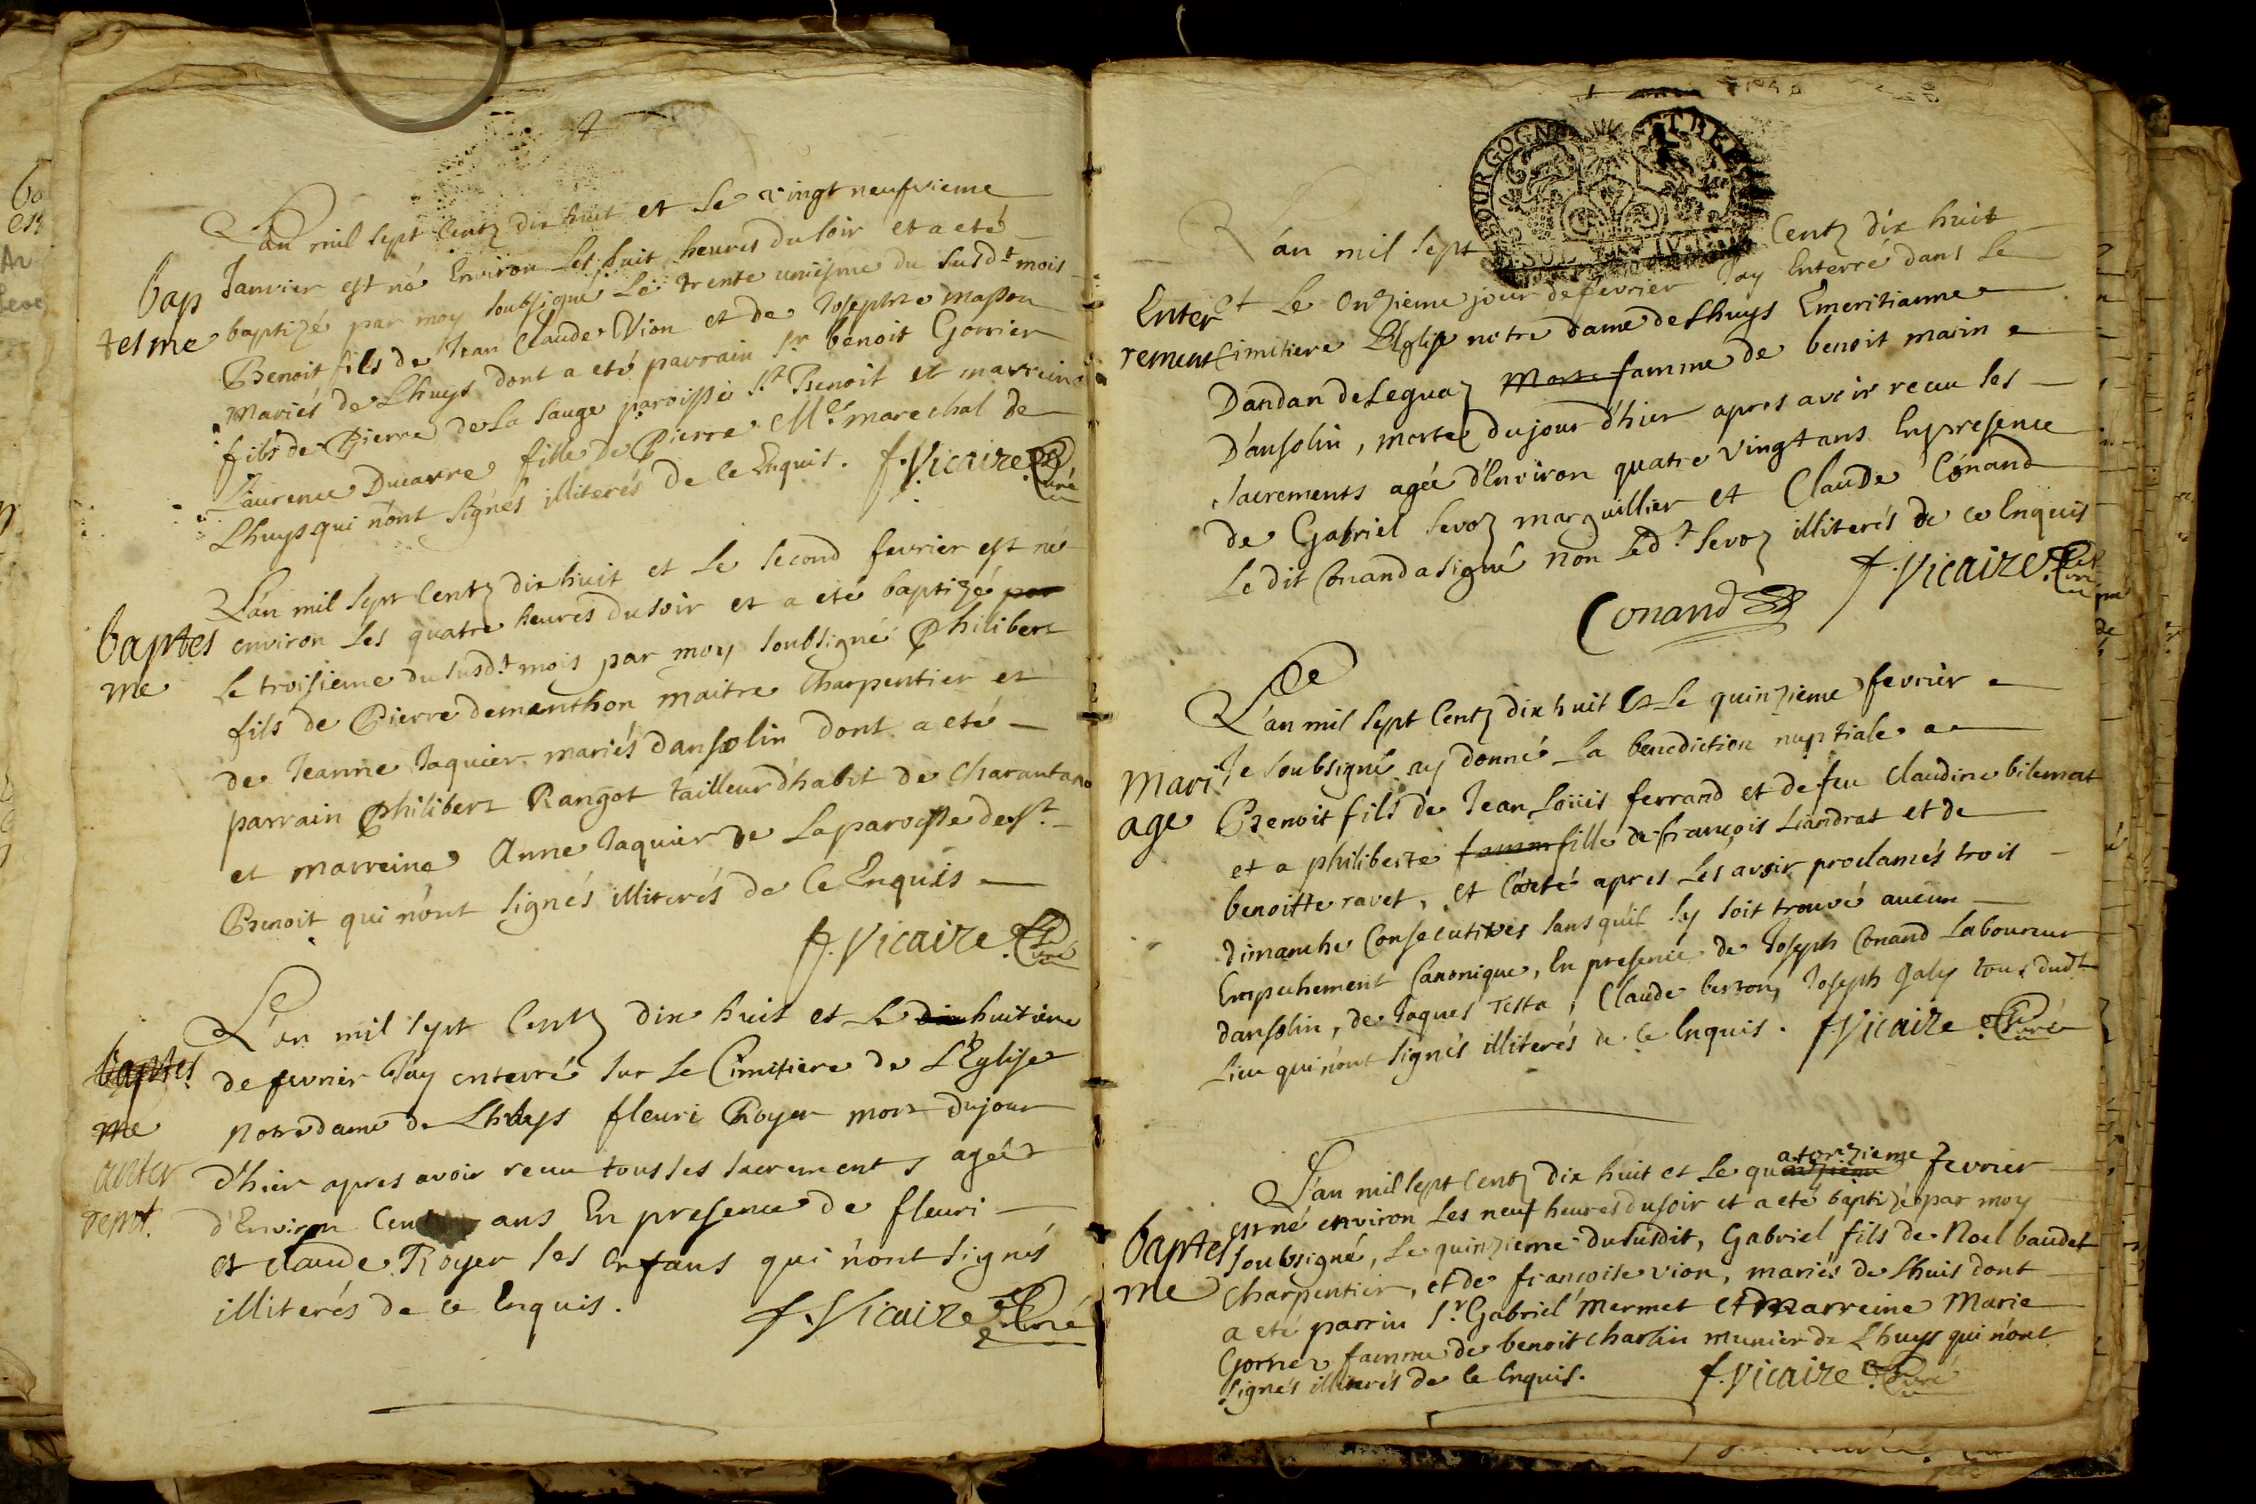 L'an mil sept Centz dix huit et le vingt neufvieme
bap
tesme
Janvier est né Environ les huit heures du soir et a eté
baptizé par moy soubsigné le trente unieme du susd.t mois
Benoit fils de Jean Claude Vion et de Josephte masson
mariés de Lhuys dont a eté parrain S.r benoit Gorrier
fils de Pierre de la sauge paroisse S.t Benoit et marreine
Laurence Ducarre fille de Pierre M.e marechal de
Lhuys qui n'ont signés illiterés de ce Enquis. f. Vicaire Curé
L'an mil sept Centz dix huit et le second fevrier est né
baptes
me
environ les quatre heures du soir et a eté baptizé par
le troisieme du susd.t mois par moy soubsigné Philibert
fils de Pierre dementhon maitre Charpentier et
de Jeanne Jaquier mariés dansolin dont a eté
parrain Philibert Rangot tailleur d'habit de Charantano
et marreine Anne Jaquier de La paroisse de S.t
Benoit qui n'ont signés illiterés de Ce Enquis
f. Vicaire Curé
L'an mil sept Centz dix huit et le dix huitieme
baptes
me
anter
remt.
de fevrier J'ay enterré sur le Cimitiere de L'Eglise
notre dame de Lhuys fleuri Royer mort du jour
d'hier apres avoir recu tous ses sacrements agée
d'Environ Cent ans En presence de fleuri
et claude Royer ses enfans qui n'ont signés
illiterés de ce Enquis.
f. Vicaire Curé
BOURGOGNE ET BRE
L'an mil sept Centz dix huit
Enter
rement
et le Onzieme jour de fevrier J'ay Enterré dans le
Cimitiere L'Eglise notre dame de Lhuys Emeritianne
Dandan de Leguaz Morte famme de benoit marin
D'ansolin, morte du jour d'hier apres avoir recu ses
sacrements agée d'Environ quatre vingt ans En presence
de Gabriel sevoz marguillier et Claude Conand
Le dit Conand a signé non led.t sevoz illiterés de ce Enquis
Conand f. Vicaire Curé
L'an mil sept Centz dix huit et le quinzieme fevrier
Mari
age
Je soubsigné ay donné la benediction nuptiale a
Benoit fils de Jean Loüis ferrand et de feu Claudine bilemat
et a philiberte famme fille de françois Liandrat et de
benoitte ravet, et c'a eté apres les avoir proclamés trois
dimanche Consecutives sans qu'il s'y soit trouvé aucun
Empechement Canonique, En presence de Joseph Conand Laboureur
dansolin, de Jaques Testa, Claude berton, Joseph Galy tous dud.t
Lieu qui n'ont signés illiterés de ce Enquis. f. Vicaire Curé
L'an mil sept Centz dix huit et le quatorzieme fevrier
baptes
me
est né environ les neuf heures du soir et a eté baptizé par moy
soubsigné, le quinzieme du susdit, Gabriel fils de Noel baudet
Charpentier, et de françoise vion, mariés de Lhuis dont
a eté parrin S.r Gabriel Mermet et Marreine Marie
Gorrier famme de benoit charlin munier de Lhuys qui n'ont
signés illiterés de ce Enquis. f. Vicaire Curé